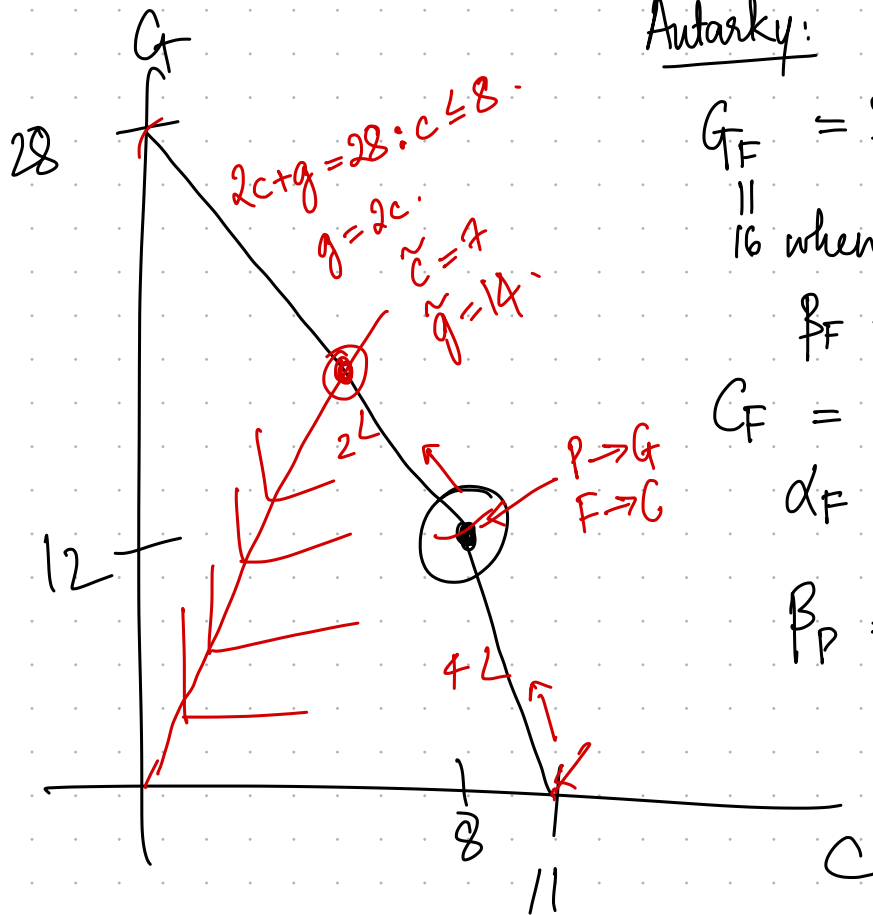 G
28
2c+g=28 : c≤8.
g=2c.
c̃=7
g̃=14.
2
P→G
F→C
12
4
8
11
C
Autarky:
G_F =
||
16 when
β_F
C_F =
α_F
β_P =